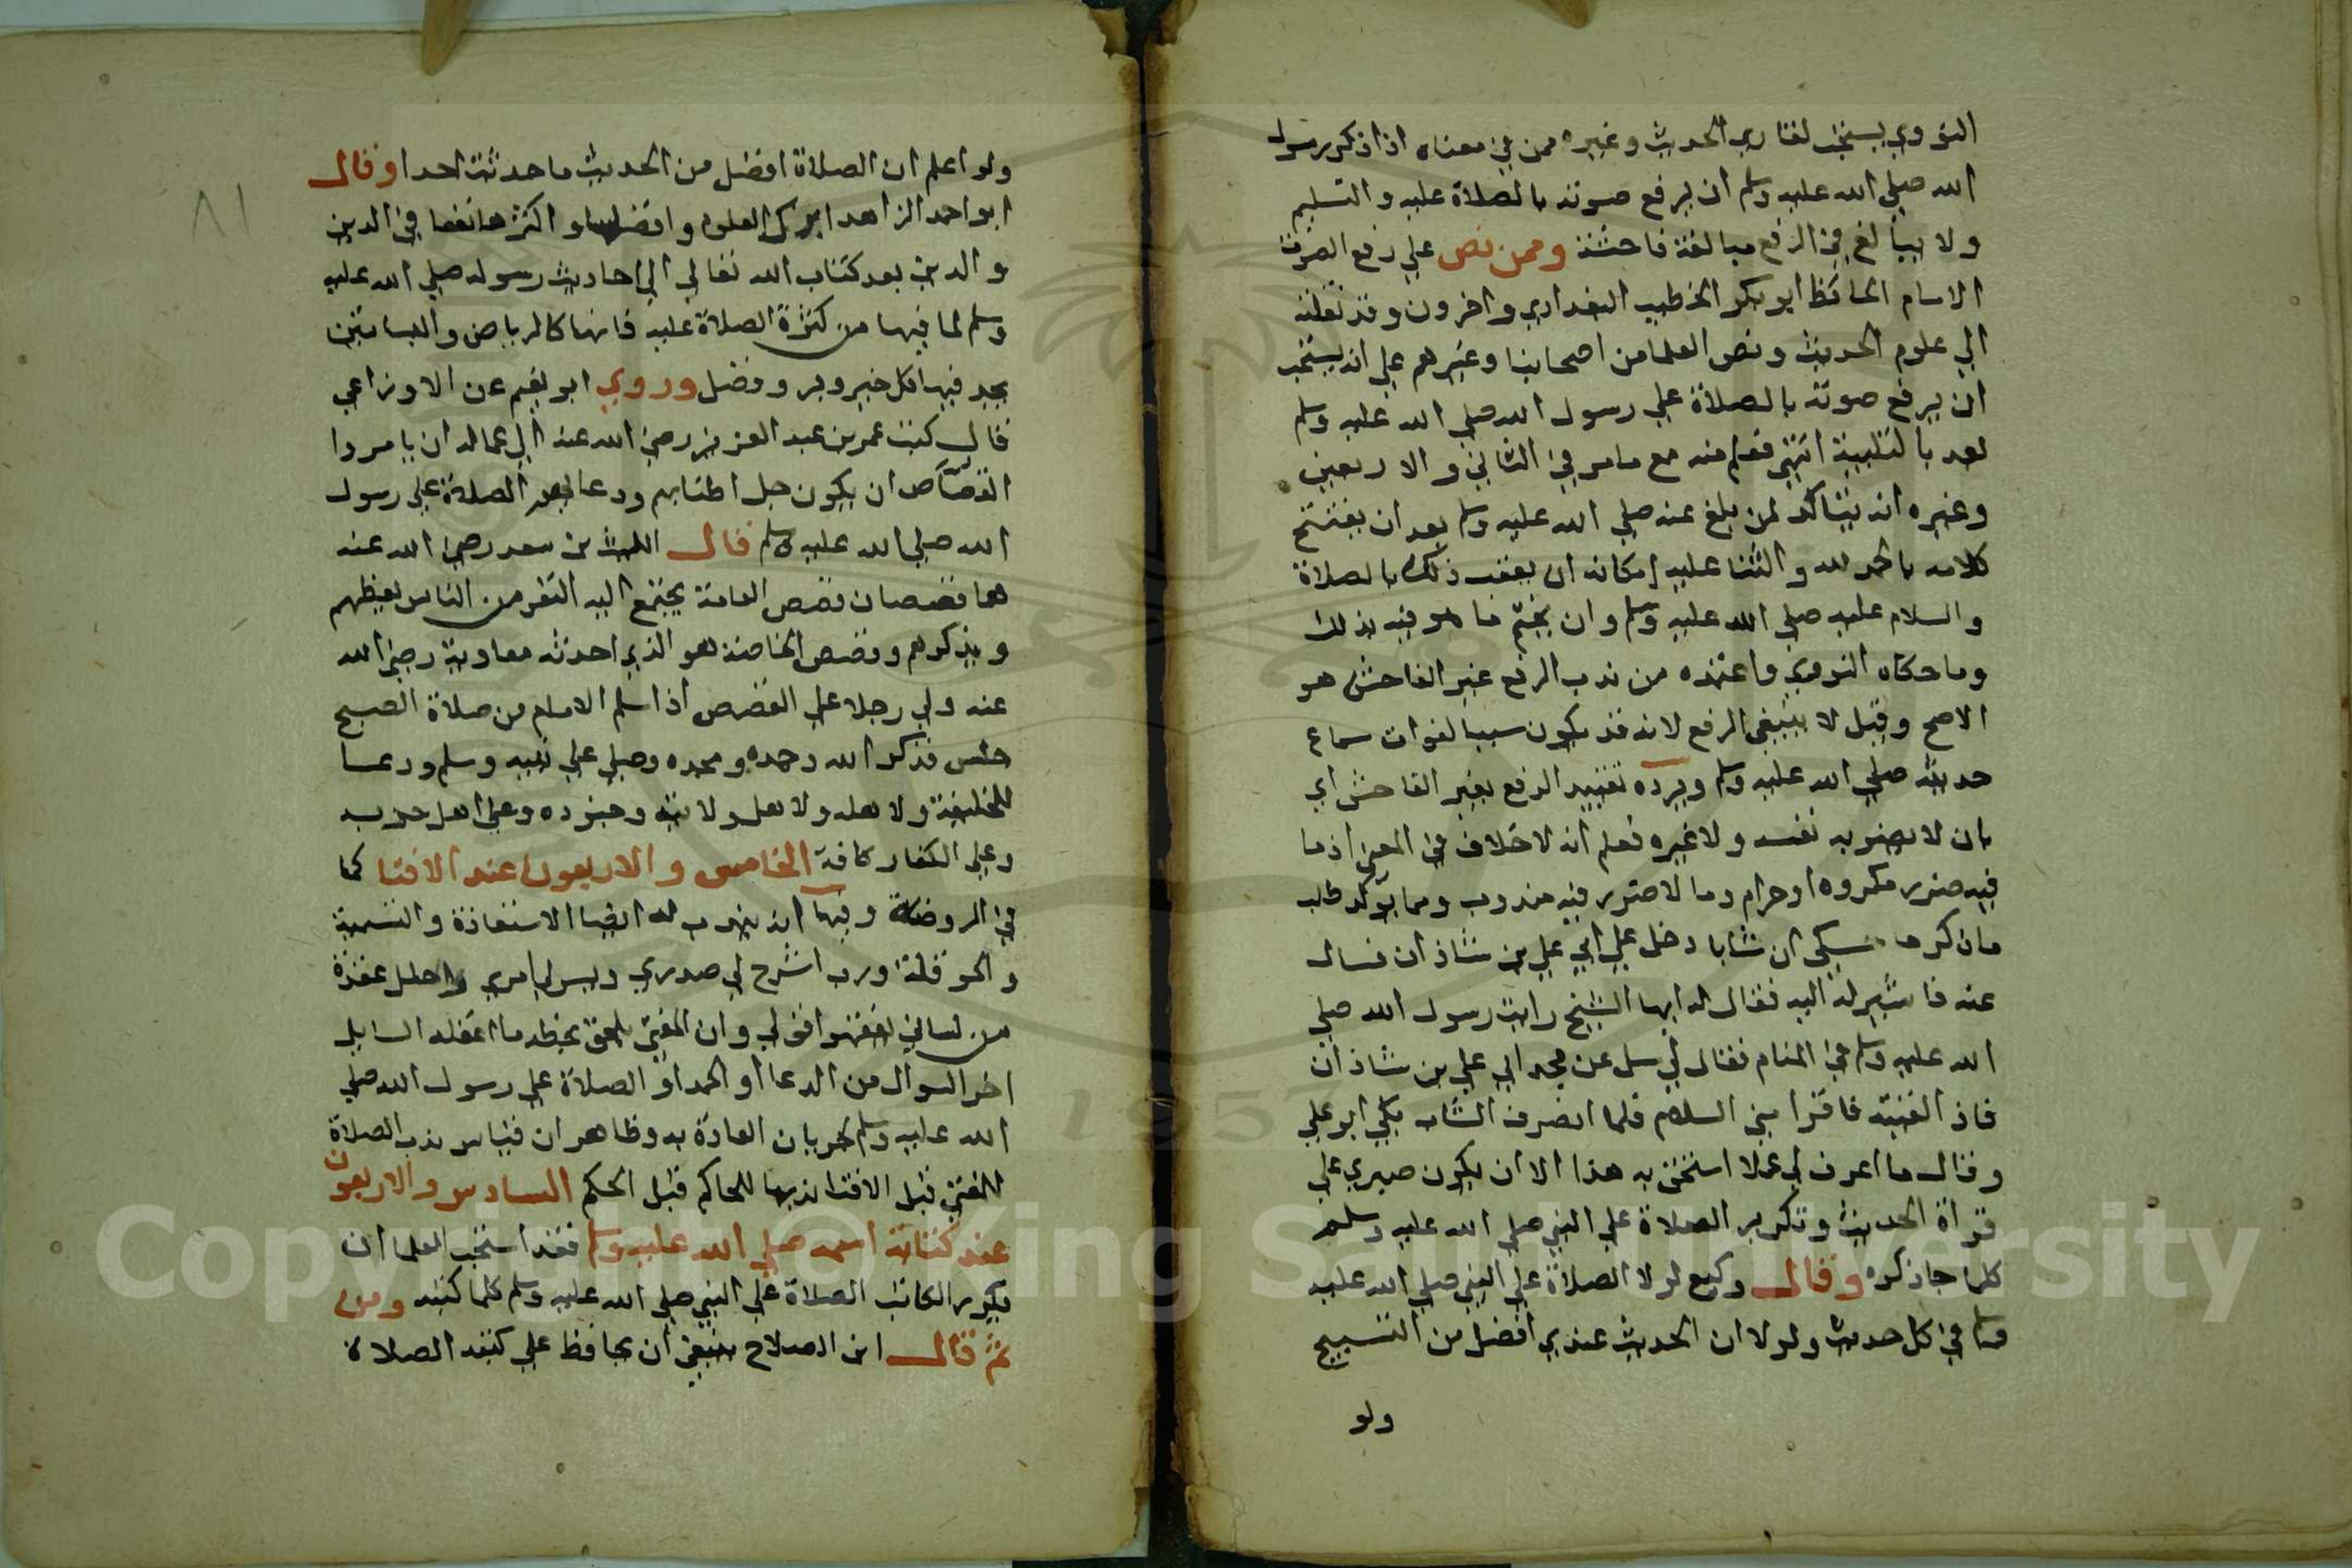 النووي يستحب لقاري الحديث وغيره ممن في معناه اذا ذكر رسول
الله صلي الله عليه وسلم ان يرفع صوته بالصلاة عليه والتسليم
ولا يبالغ في الرفع مبالغة فاحشة وممن نص علي رفع الصوت
الامام الحافظ ابو بكر الخطيب البغدادي واخرون وقد نقلته
الي علوم الحديث ونص العلما من اصحابنا وغيرهم علي انه يستحب
ان يرفع صوته بالصلاة علي رسول الله صلي الله عليه وسلم
بعد بالتلبية انتهي فعلم منه مع ما مر في الثاني والاربعين
وغيره انه يتاكد لمن بلغ عنه صلي الله عليه وسلم بعد ان يفتتح
كلامه بالحمد لله والثنا عليه امكانه ان يعقب ذلك بالصلاة
والسلام عليه صلي الله عليه وسلم وان يختم ما هو فيه بذلك
وما حكاه النووي واعتمده من ندب الرفع غير الفاحش هو
الاصح وقيل لا ينبغي الرفع لانه قد يكون سببا لفوات سماع
حديثه صلي الله عليه وسلم ويرده تقييد الرفع بغير الفاحش اي
بان لا يضر به نفسه ولا غيره فعلم انه لا خلاف في المعني اذ ما
فيه ضرر مكروه او حرام وما لا ضرر فيه مندوب ومما يوكد طلب
ما ذكر ما حكي ان شابا دخل علي ابي علي بن شاذان فسال
عنه فاشير له اليه فقال له ايها الشيخ رايت رسول الله صلي
الله عليه وسلم في المنام فقال لي سل عن مجلس ابي علي بن شاذان
فاذا لقيته فاقراه مني السلام فلما انصرف الشاب بكي ابو علي
وقال ما اعرف لي عملا استحق به هذا الا ان يكون صبري علي
قراة الحديث وتكرير الصلاة علي النبي صلي الله عليه وسلم
كلما جا ذكره وقال وكيع لولا الصلاة علي النبي صلي الله عليه
وسلم في كل حديث ولولا ان الحديث عندي افضل من التسبيح
ولو
٨١
ولو اعلم ان الصلاة افضل من الحديث ما حدثت احدا وقال
ابو احمد الزاهد ابرك العلوم وافضلها واكثرها نفعا في الدين
والدين بعد كتاب الله تعالي الي احاديث رسوله صلي الله عليه
وسلم لما فيها من كثرة الصلاة عليه فانها كالرياض والبساتين
يجد فيها كل خير وبر وفضل وروي ابو نعيم عن الاوزاعي
قال كتب عمر بن عبد العزيز رضي الله عنه الي عماله ان يامروا
القصاص ان يكون جل اطنابهم ودعا بعد الصلاة علي رسول
الله صلي الله عليه وسلم قال الليث بن سعد رضي الله عنه
هما قصصان قصص العامة يجتمع اليه النفر من الناس يعظهم
ويذكرهم وقصص الخاصة هو الذي احدثه معاوية رضي الله
عنه ولي رجلا علي القصص اذا سلم الامام من صلاة الصبح
جلس فذكر الله وحمده ومجده وصلي علي نبيه وسلم ودعا
للخليفة ولاهله ولاهل ولايته وجنوده وعلي اهل حربه
وعلي الكفار كافة الخامس والاربعون عند الافتا كما
في الروضة وفيها انه يندب له ايضا الاستعاذة والتسمية
والحوقلة ورب اشرح لي صدري ويسر لي امري واحلل عقدة
من لساني يفقهوا قولي وان المفتي يلحق بخطه ما اغفله السايل
اخر السوال من الدعا او الحمد او الصلاة علي رسول الله صلي
الله عليه وسلم لجريان العادة به وظاهر ان قياس ندب الصلاة
للمفتي قبل الافتا ندبها للحاكم قبل الحكم السادس والاربعون
عند كتابة اسمه صلي الله عليه وسلم فقد استحب العلما ان
يكرر الكاتب الصلاة علي النبي صلي الله عليه وسلم كلما كتبه ومن
ثم قال ابن الصلاح ينبغي ان يحافظ علي كتبه الصلاة
Copyright © King Saud University
1957